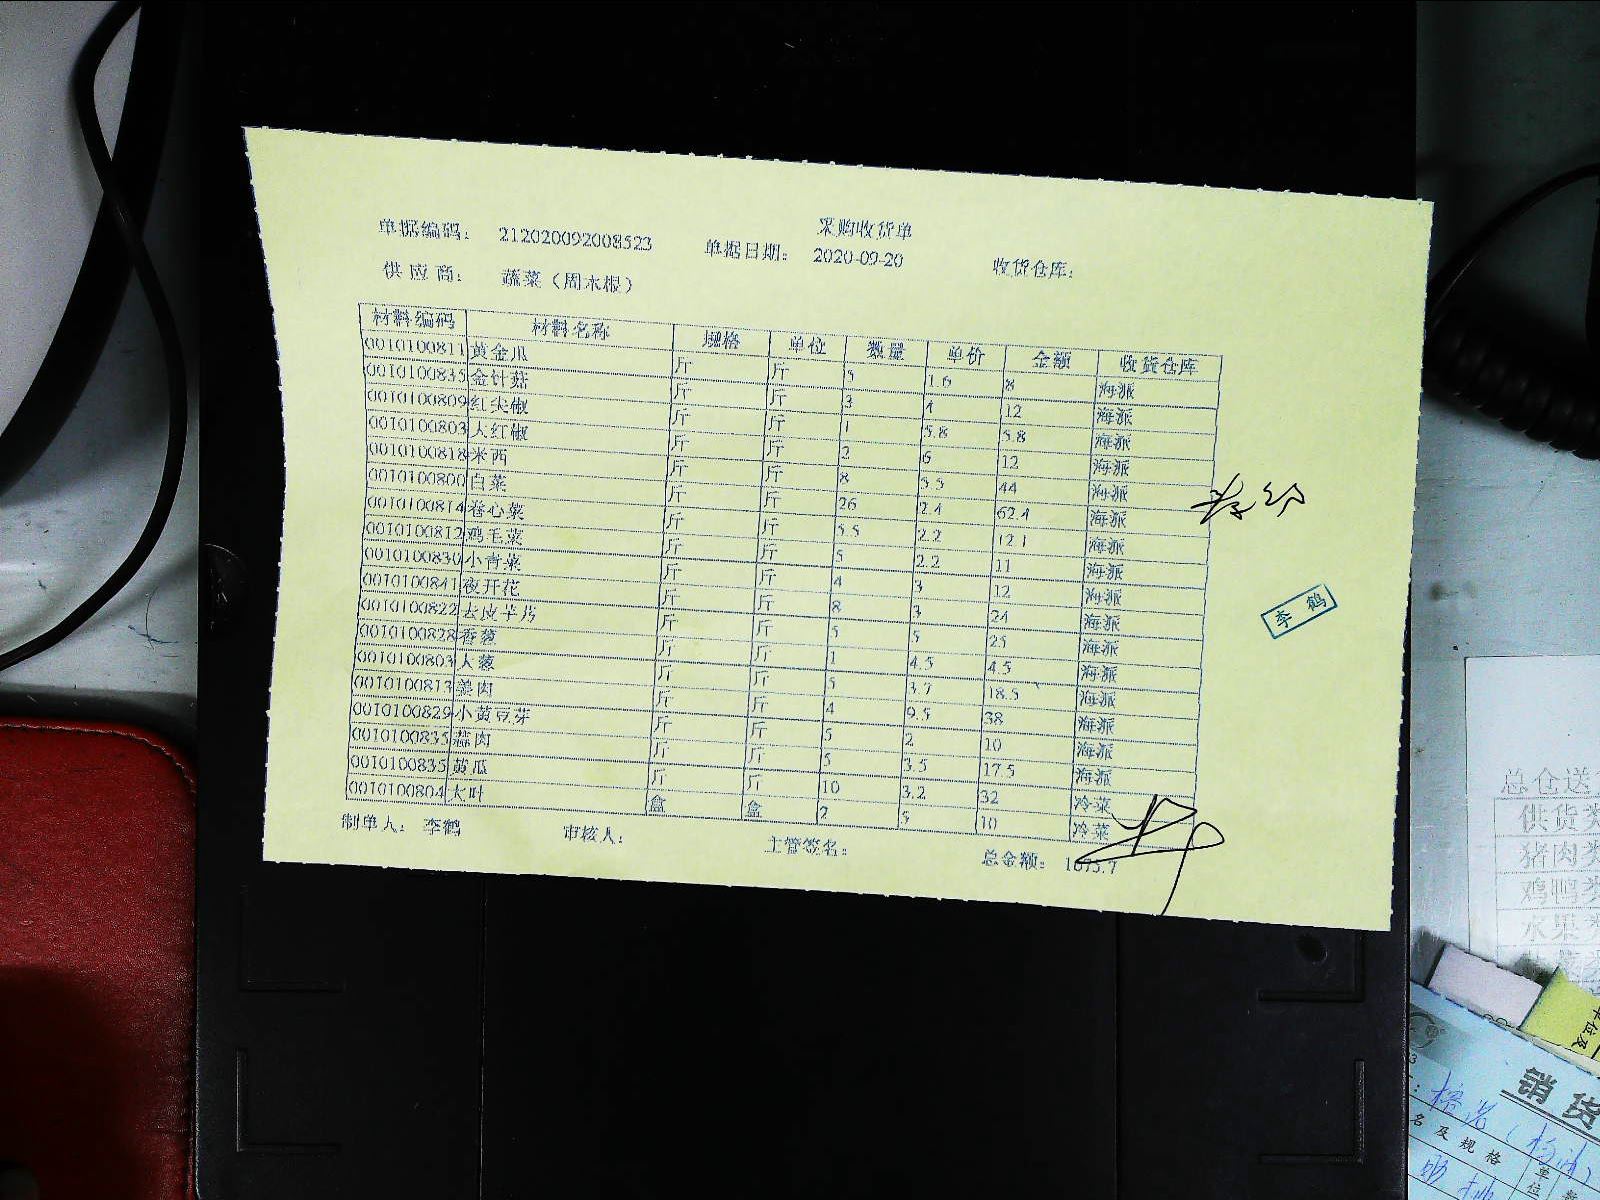 采购收货单
单据编码： 212020092008523 单据日期： 2020-09-20 收货仓库：
供应商： 蔬菜（周木根）
材料编码 材料名称 规格 单位 数量 单价 金额 收货仓库
0010100811 黄金瓜 斤 斤 5 1.6 8 海派
0010100835 金针菇 斤 斤 3 4 12 海派
0010100809 红尖椒 斤 斤 1 5.8 5.8 海派
0010100803 大红椒 斤 斤 2 6 12 海派
0010100818 米西 斤 斤 8 5.5 44 海派
0010100800 白菜 斤 斤 26 2.4 62.4 海派
0010100814 卷心菜 斤 斤 5.5 2.2 12.1 海派
0010100812 鸡毛菜 斤 斤 5 2.2 11 海派
0010100830 小青菜 斤 斤 4 3 12 海派
0010100841 夜开花 斤 斤 8 3 24 海派
0010100822 去皮芋艿 斤 斤 5 5 25 海派
0010100828 香葱 斤 斤 1 4.5 4.5 海派
0010100803 大葱 斤 斤 5 3.7 18.5 海派
0010100813 姜肉 斤 斤 4 9.5 38 海派
0010100829 小黄豆芽 斤 斤 5 2 10 海派
0010100835 蒜肉 斤 斤 5 3.5 17.5 海派
0010100835 黄瓜 斤 斤 10 3.2 32 冷菜
0010100804 大叶 盒 盒 2 5 10 冷菜
制单人： 李鹤 审核人： 主管签名： 总金额：
李鹤
总仓送
供货类
猪肉类
鸡鸭类
水果类
单位及
销货
名及规格
单位